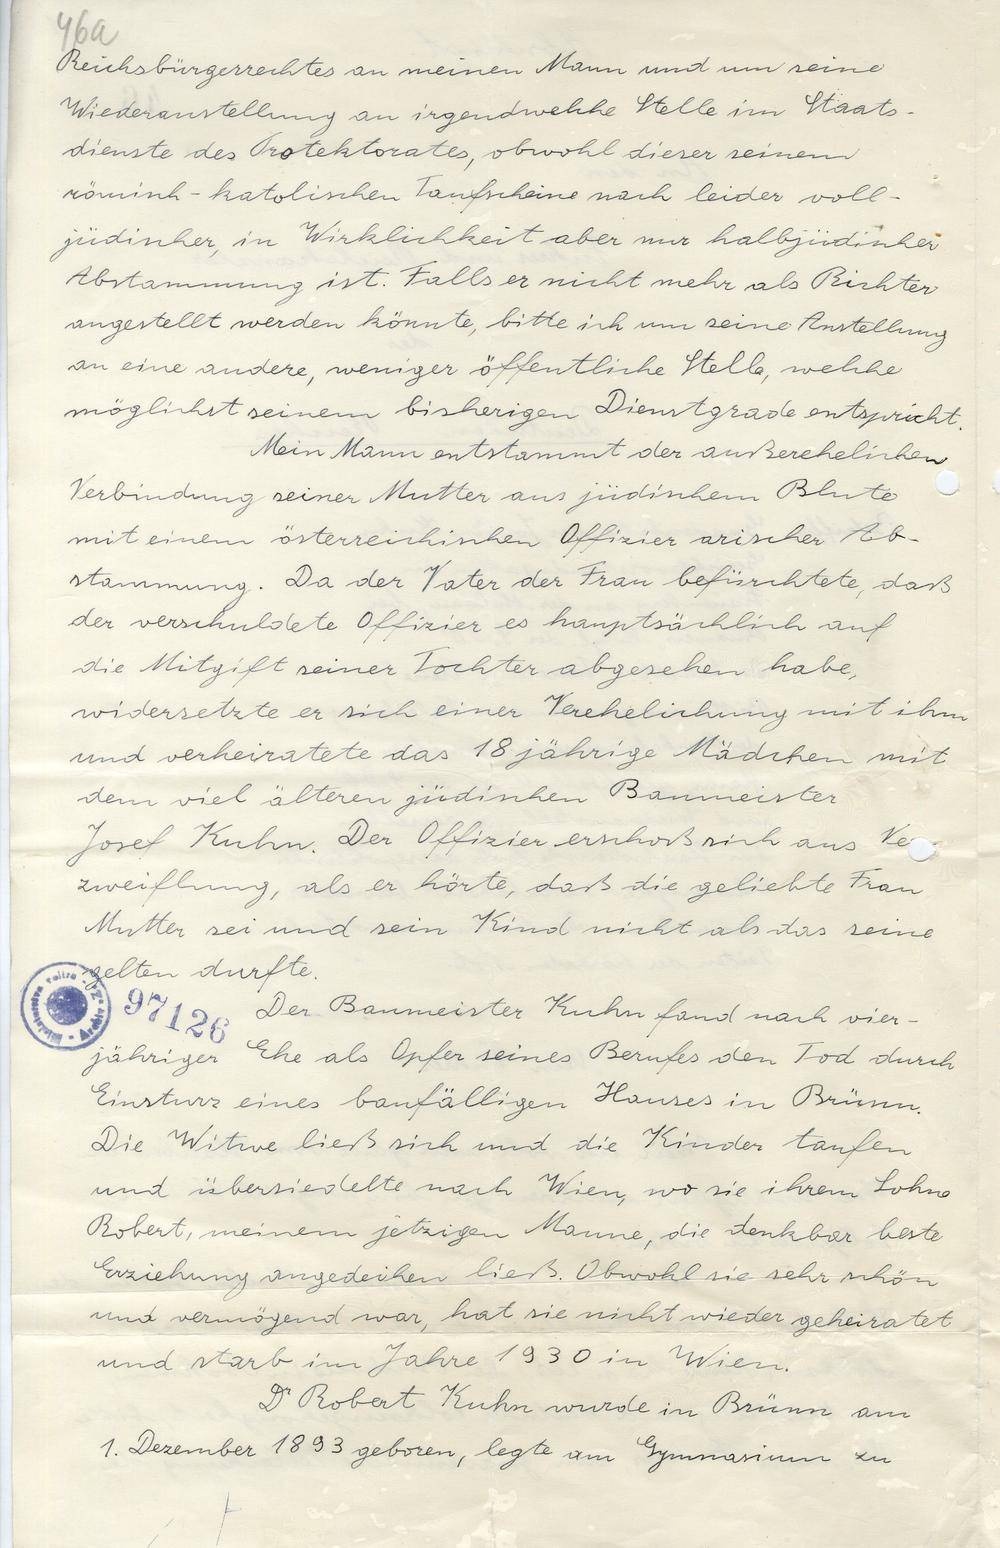 46a
Reichsbürgerrechtes an meinen Mann und um seine
Wiederanstellung an irgendwelche Stelle im Staats-
dienste des Protektorates, obwohl dieser seinem
römisch-katolischen Taufscheine nach leider voll-
jüdischer, in Wirklichkeit aber nur halbjüdischer
Abstammung ist. Falls er nicht mehr als Richter
angestellt werden könnte, bitte ich um seine Anstellung
an eine andere, weniger öffentliche Stelle, welche
möglichst seinem bisherigen Dienstgrade entspricht.
Mein Mann entstammt der außerehelichen
Verbindung seiner Mutter aus jüdischem Blute
mit einem österreichischen Offizier arischer Ab-
stammung. Da der Vater der Frau befürchtete, daß
der verschuldete Offizier es hauptsächlich auf
die Mitgift seiner Tochter abgesehen habe,
widersetzte er sich einer Verehelichung mit ihm
und verheiratete das 18 jährige Mädchen mit
dem viel älteren jüdischen Baumeister
Josef Kuhn. Der Offizier erschoß sich aus Ver
zweiflung, als er hörte, daß die geliebte Frau
Mutter sei und sein Kind nicht als das seine
gelten durfte.
97126
Der Baumeister Kuhn fand nach vier-
jähriger Ehe als Opfer seines Berufes den Tod durch
Einsturz eines baufälligen Hauses in Brünn.
Die Witwe ließ sich und die Kinder taufen
und übersiedelte nach Wien, wo sie ihrem Sohne
Robert, meinem jetzigen Manne, die denkbar beste
Erziehung angedeihen ließ. Obwohl sie sehr schön
und vermögend war, hat sie nicht wieder geheiratet
und starb im Jahre 1930 in Wien.
Dr Robert Kuhn wurde in Brünn am
1. Dezember 1893 geboren, legte am Gymnasium zu